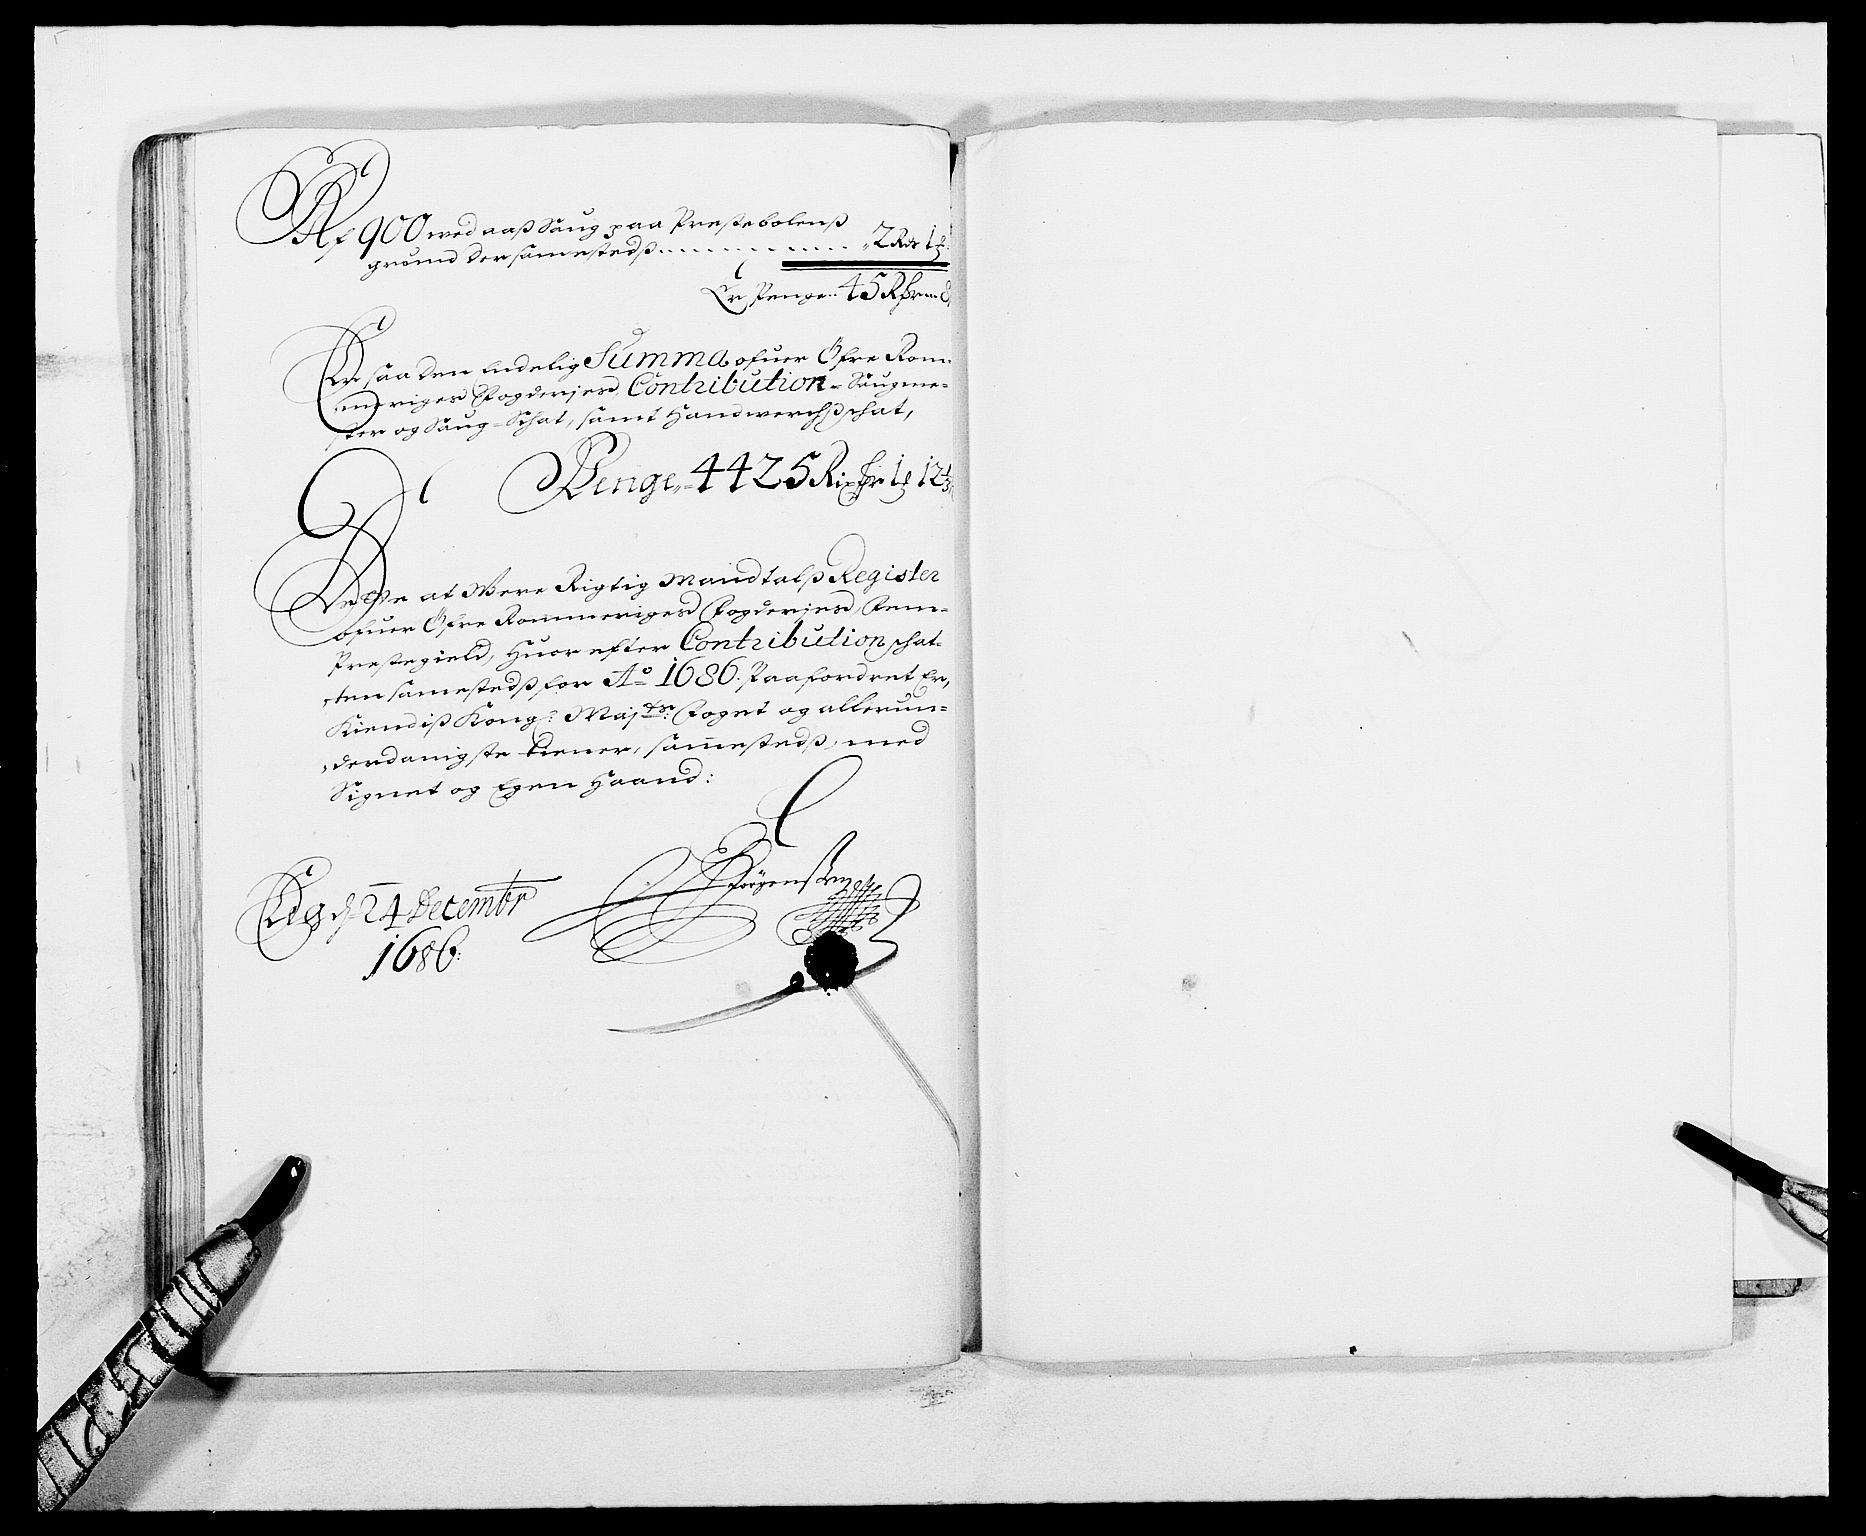 Af 900 wed aaß Saug paa Prestebolenß
grund der sammestedß ........... 2 Rdr 1
Er Penge.. 45 R
Er saa den endelig Summa ofuer Öfre Rom-
meriges Fogderies Contribution- Saugme-
ster og Saug-Schat, samt Handwerchßschat,
Penge,, 4425 Rixdr 1 12
Dette at Were Rigtig Mandtalß Register
ofuer Öfre Rommeriges Fogderies Fem
Prestegield, Huor efter Contribution schat-
ten sammestedß for A° 1686. Paafordret Er,
Kiendiß Kongl: Majtz: Foget og allerun-
derdanigste tiener, sammestedß, med
Signet og Egen Haand:
d 24 Decembr
1686: